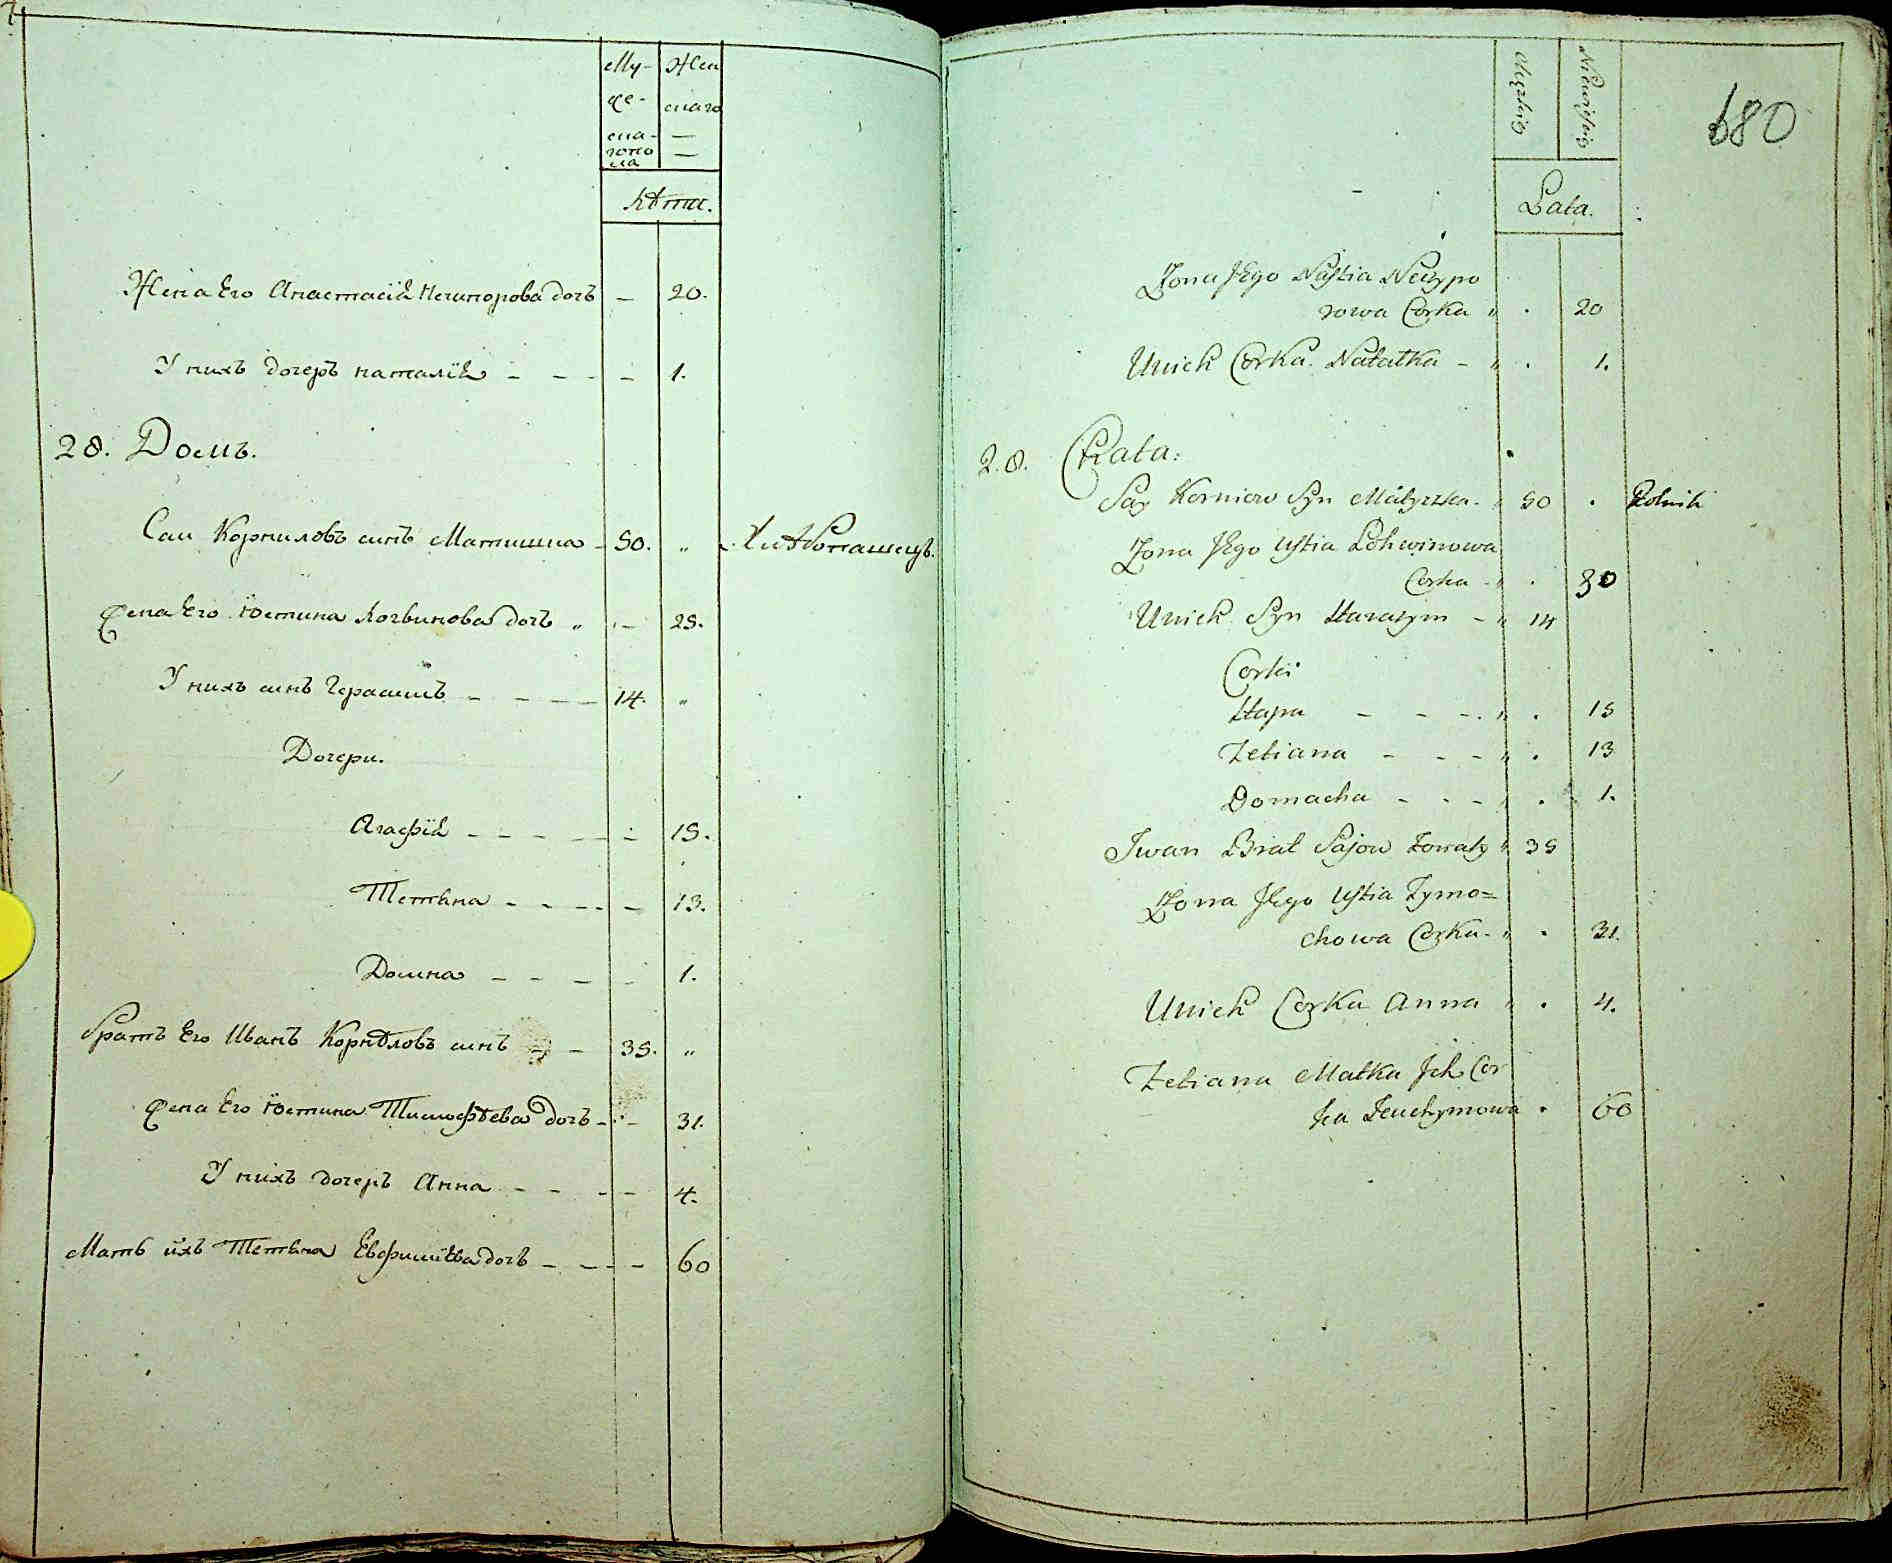 Му-
же-
ска-
гопо
ла
Жен
скаго
лѣта.
Жена Его Анастасія Нечипорова дочь — 20.
У нихъ дочерь наталія — 1.
28. Домъ.
Саи Корниловъ синъ Матишина 50. „ Хлѣбопашецъ.
жена Его Юстина Логвинова дочь „ — 25.
У нихъ синъ Герасимъ — 14. „
Дочери.
Агафія — 15.
Тетяна — 13.
Домна — 1.
братъ Его Иванъ Корнѣловъ синъ — 35. „
жена Его Юстина Тимофѣева дочь — 31.
У нихъ дочерь Анна — 4.
Мать ихъ Тетяна Евфиміева дочь — 60
680
Męzkiey
Niewieściey
Lata.
Żona Jego Nastia Neczypo
rowa Corka „ . 20
Unich Corka Natalka — „ . 1.
28. Chata:
Say Korniow Syn Matyszka „ 50 . Rolnik
Żona Jego Ustia Lohwinowa
Corka „ . 30
Unich Syn Harasym — „ 14
Corki
Hapa — „ . 15
Tetiana — „ . 13
Domacha — „ . 1.
Iwan Brat Sajow żonaty „ 35
Żona Jego Ustia Tymo=
chowa Corka „ . 31.
Unich Corka Anna „ . 4.
Tetiana Matka Ich Cor
ka Jeuchymowa . 60